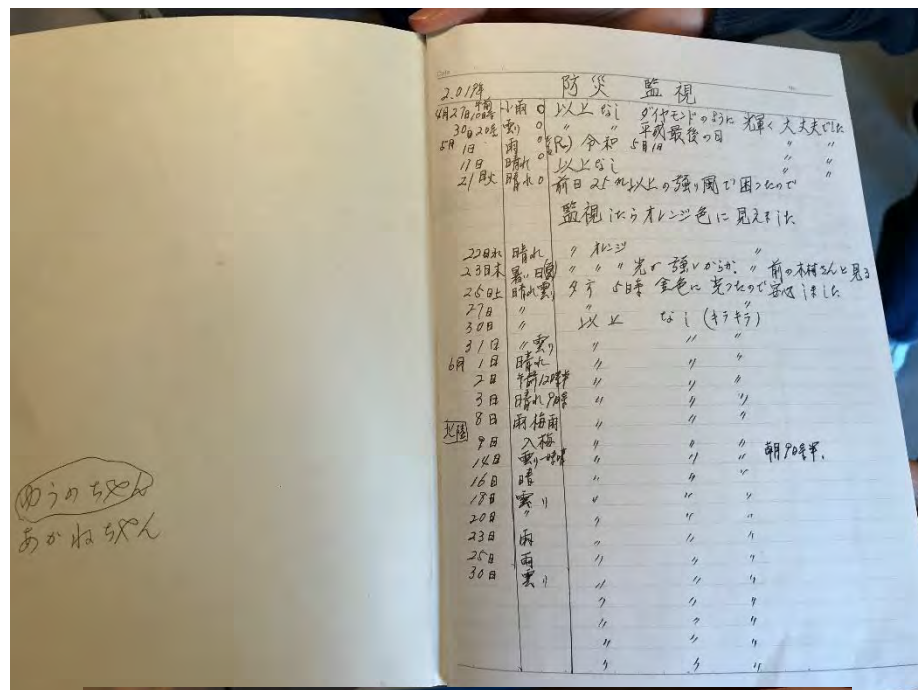 ゆうのちゃん
あかねちゃん
Date
防災 監視
2.019年
4月27日 午前10時 小雨 0 以上なし ダイヤモンドのように光輝く大丈夫でした
30日20時 曇り 0 〃 〃 平成最後の日
5月1日 雨 0 (R) 令和 5月1日 〃 〃
17日 晴れ 0 以上なし 〃 〃
21日火 晴れ 0 前日25m以上の強い風で困ったので
監視したらオレンジ色に見えました
22日水 晴れ 〃 オレンジ 〃
23日木 暑い日 〃 〃 〃 光が強いからか、〃 前の木村さんと見る
25日土 晴れ曇り 夕方 5時 金色に光ったので しました
27日 〃 〃 〃
30日 〃 以上 なし (キラキラ)
31日 〃 曇り 〃 〃 〃
6月1日 晴れ 〃 〃 〃
2日 午前12時半 〃 〃 〃
3日 晴れ 9時 〃 〃 〃
8日 雨梅雨 〃 〃 〃
北陸 9日 入梅 〃 〃 〃
14日 曇り 〃 〃 〃 朝9時半.
16日 晴 〃 〃 〃
18日 曇り 〃 〃 〃
20日 〃 〃 〃 〃
23日 雨 〃 〃 〃
25日 雨 〃 〃 〃
30日 曇り 〃 〃 〃
〃 〃 〃
〃 〃 〃
〃 〃 〃
〃 〃 〃